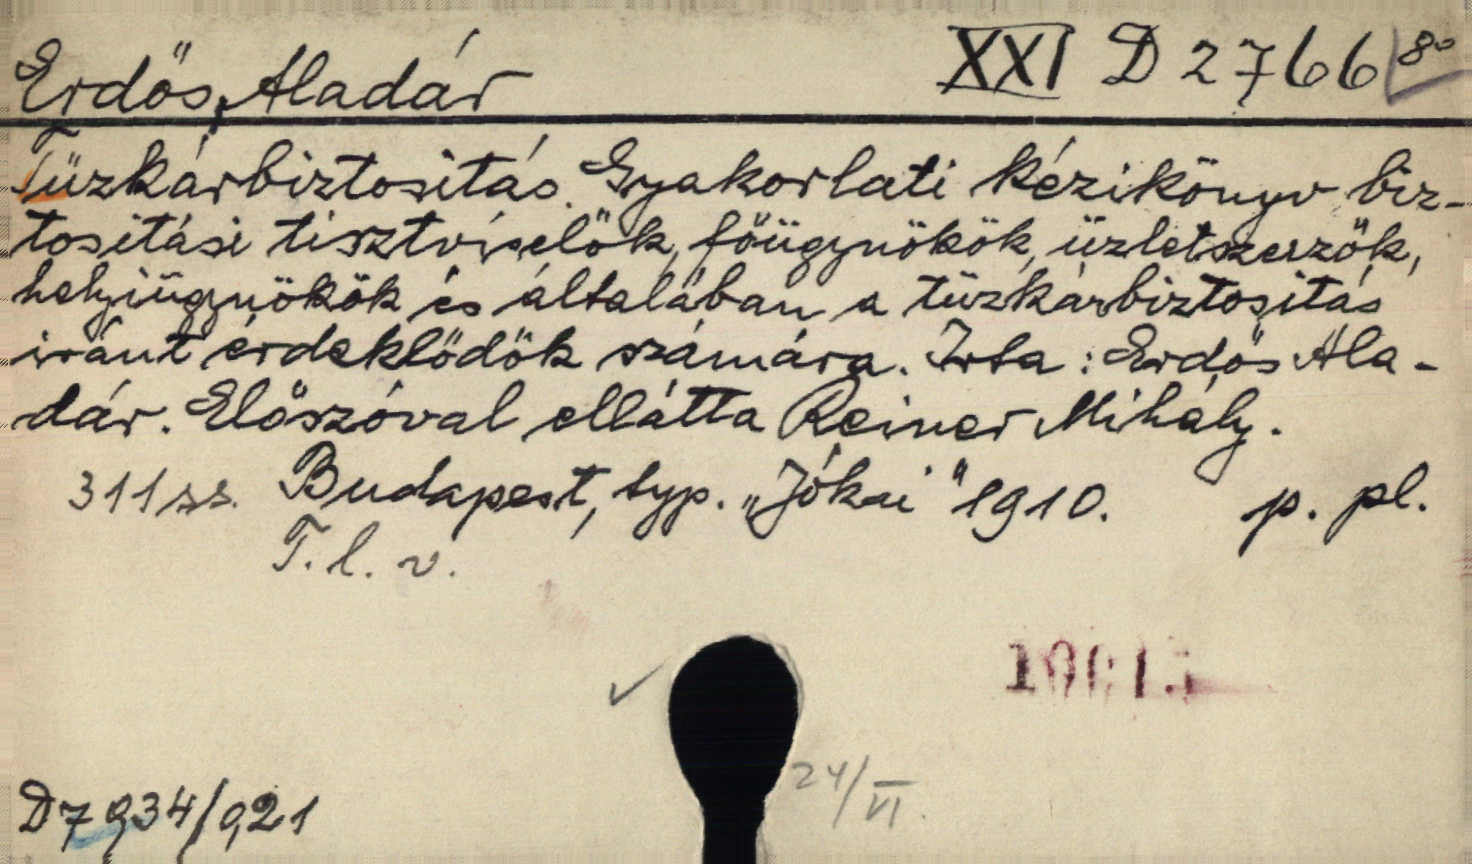 Erdős, Aladár XXI D 2766 8°
Tüzkárbiztositás. Gyakorlati kézikönyv biz-
tositási tisztviselők, főügynökök, üzletszerzők,
helyiügynökök és általában a tüzkárbiztositás
iránt érdeklődők számára. Irta: Erdős Ala-
dár. Előszóval ellátta Reiner Mihály.
311 ss. Budapest, typ. „Jókai" 1910. p. pl.
T. l. v.
24/VI.
D 7934/921